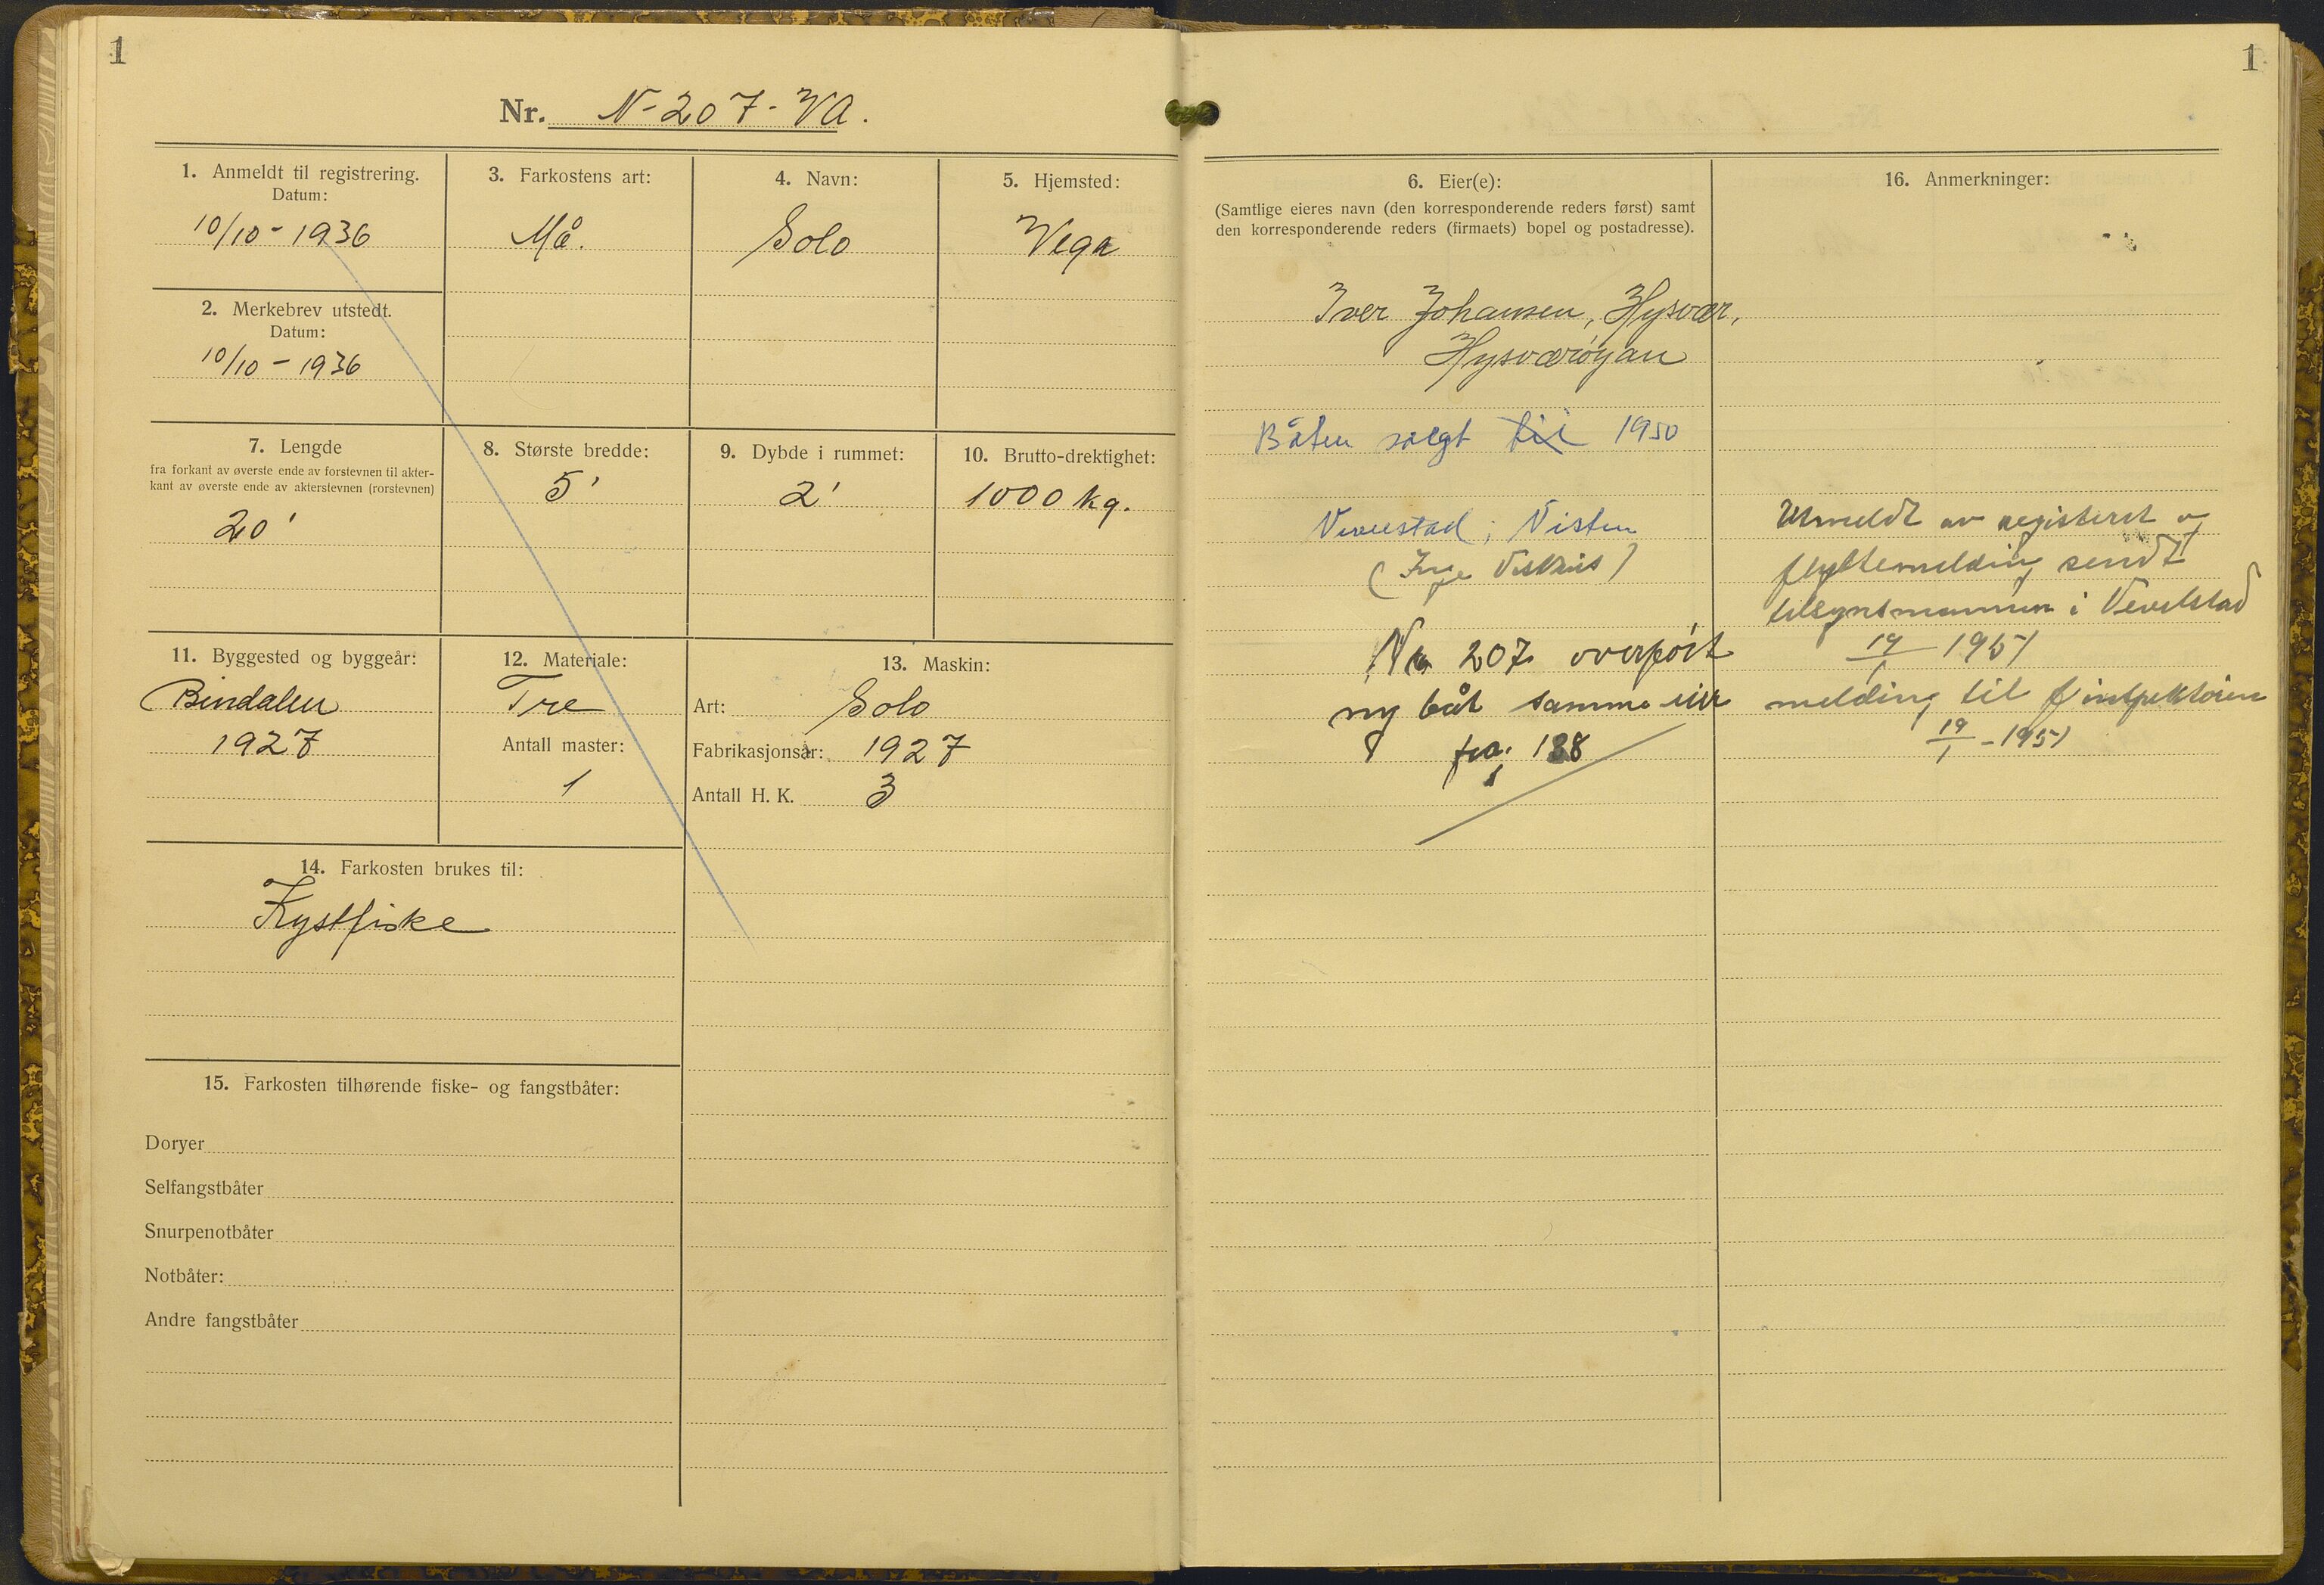 1
Nr. N-207-VA.
1. Anmeldt til registrering.
Datum:
10/10-1936
2. Merkebrev utstedt.
Datum:
10/10-1936
3. Farkostens art:
Må.
4. Navn:
Solo
5. Hjemsted:
Vega
7. Lengde
fra forkant av øverste ende av forstevnen til akter-
kant av øverste ende av akterstevnen (rorstevnen)
20'
8. Største bredde:
5'
9. Dybde i rummet:
2'
10. Brutto-drektighet:
1000 kg.
11. Byggested og byggeår:
Bindalen
1927
12. Materiale:
Tre
Antall master:
1
13. Maskin:
Art: Solo
Fabrikasjonsår: 1927
Antall H. K. 3
14. Farkosten brukes til:
Kystfiske
15. Farkosten tilhørende fiske- og fangstbåter:
Doryer
Selfangstbåter
Snurpenotbåter
Notbåter:
Andre fangstbåter
1
6. Eier(e):
(Samtlige eieres navn (den korresponderende reders først) samt
den korresponderende reders (firmaets) bopel og postadresse).
Iver Johansen, Hysvær,
Hysværøyan
Båten solgt til 1950
Vevelstad, Visten
(Inge
Nr 207 overført
ny båt samme eier
138
16. Anmerkninger:
Utmeldt av registeret og
flyttemelding sendt
tilsynsmannen i Vevelstad
19/1 1951
melding til f inspektøren
19/1 - 1951